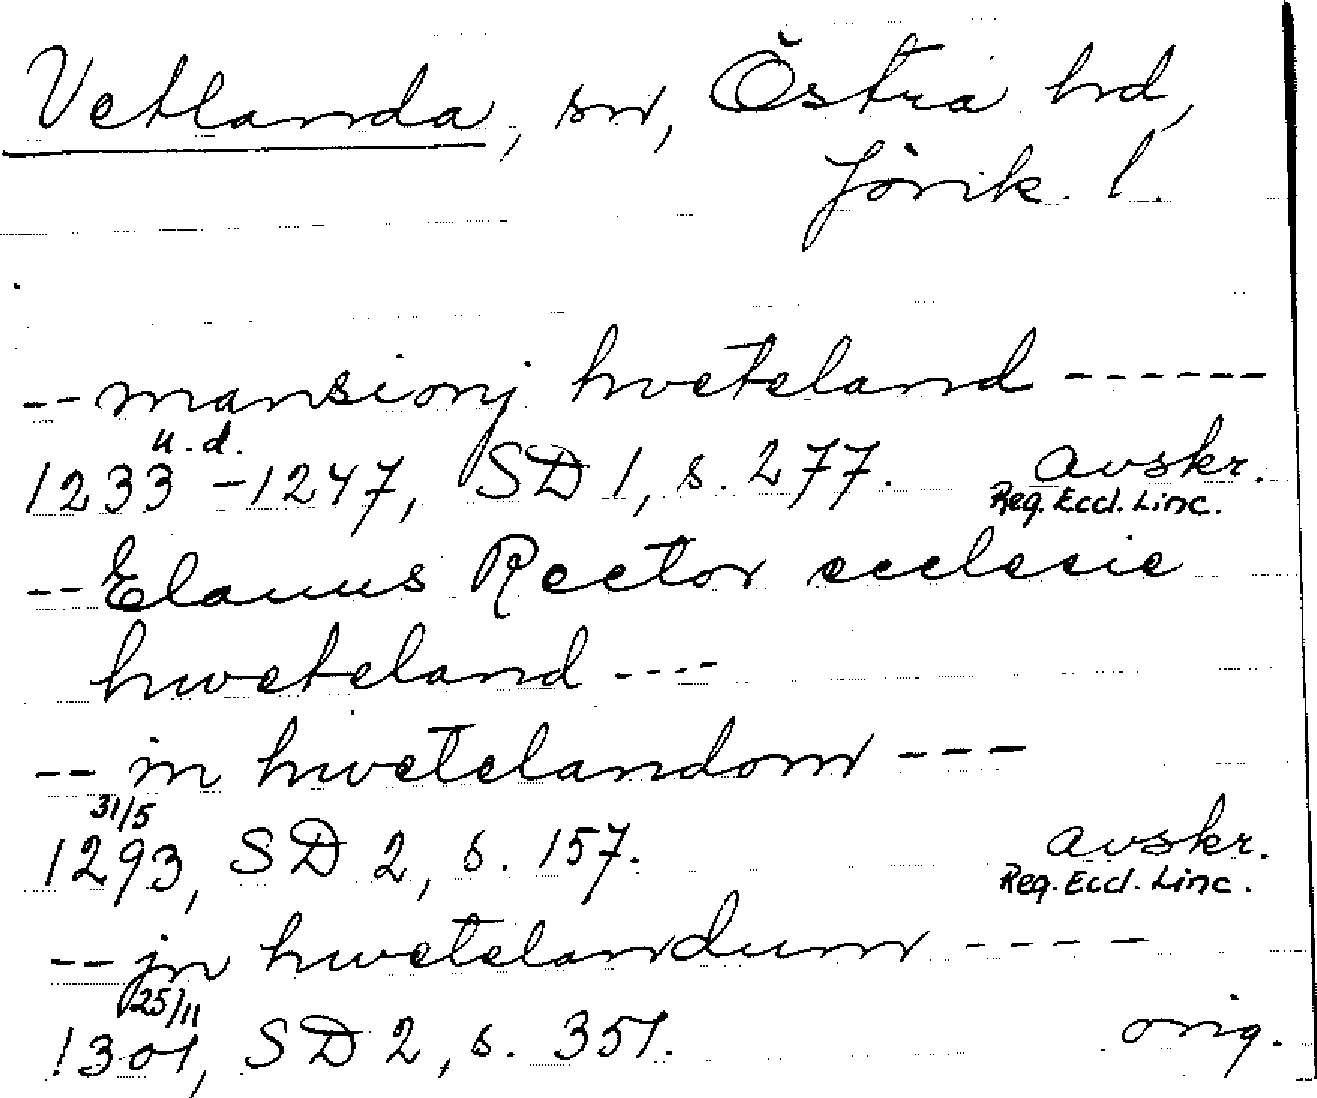 Vetlanda, sn, Östra hd,
Jönk. l.
-- mansionj hveteland ------
u. d.
1233 - 1247, SD 1, s. 277. avskr.
Reg. Eccl. Linc.
-- Elauus Rector ecclesie
hweteland ----
-- in hwetelandom ---
31/5
1293, SD 2, s. 157. avskr.
Reg. Eccl. Linc.
-- jn hwetelandum ----
25/11
1301, SD 2, s. 351. orig.